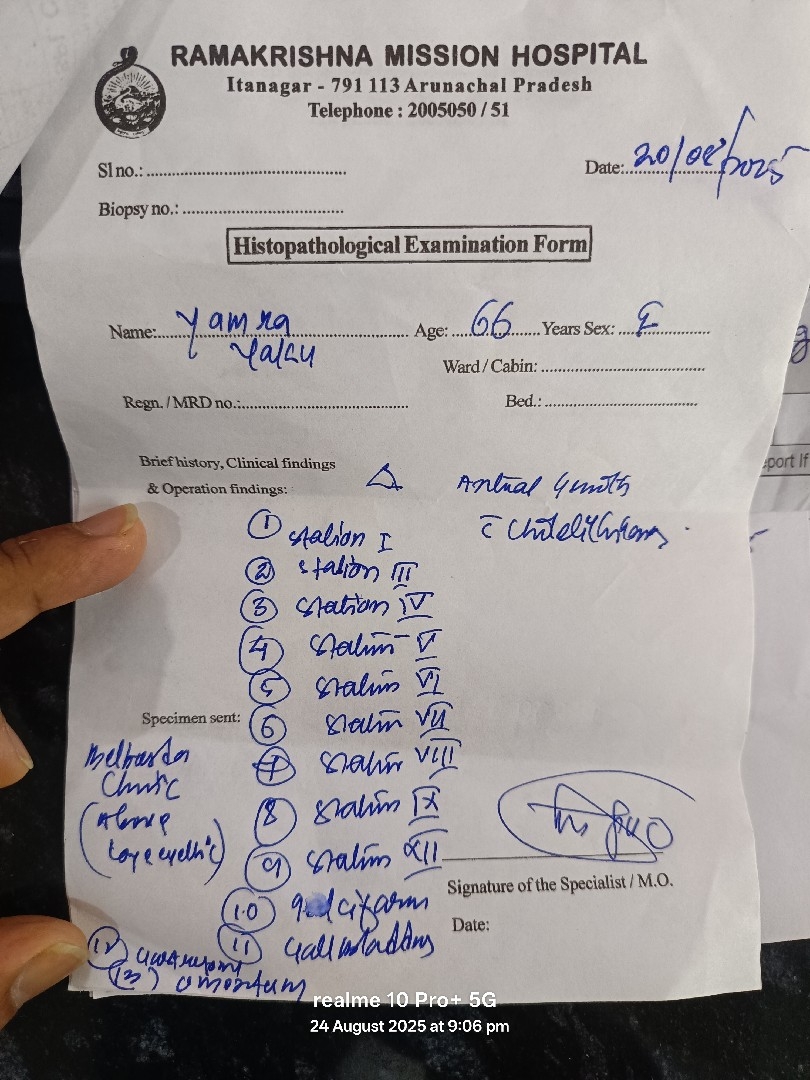 RAMAKRISHNA MISSION HOSPITAL
Itanagar - 791 113 Arunachal Pradesh
Telephone : 2005050 / 51
Sl no.:
Date: 20/08/2025
Biopsy no.:
Histopathological Examination Form
Name: Yamra
Age: 66 Years Sex: F
Ward / Cabin:
Regn. / MRD no.:
Bed.:
Brief history, Clinical findings
& Operation findings:
Antral Growth
① Station I
② Station III
③ Station IV
④ Station V
⑤ Station VI
Specimen sent:
⑥ Station VII
⑦ Station VIII
Clinic
⑧ Station IX
⑨ Station XII
Signature of the Specialist / M.O.
10
11 Gallbladder
Date:
12
13) Omentum
realme 10 Pro+ 5G
24 August 2025 at 9:06 pm
port If